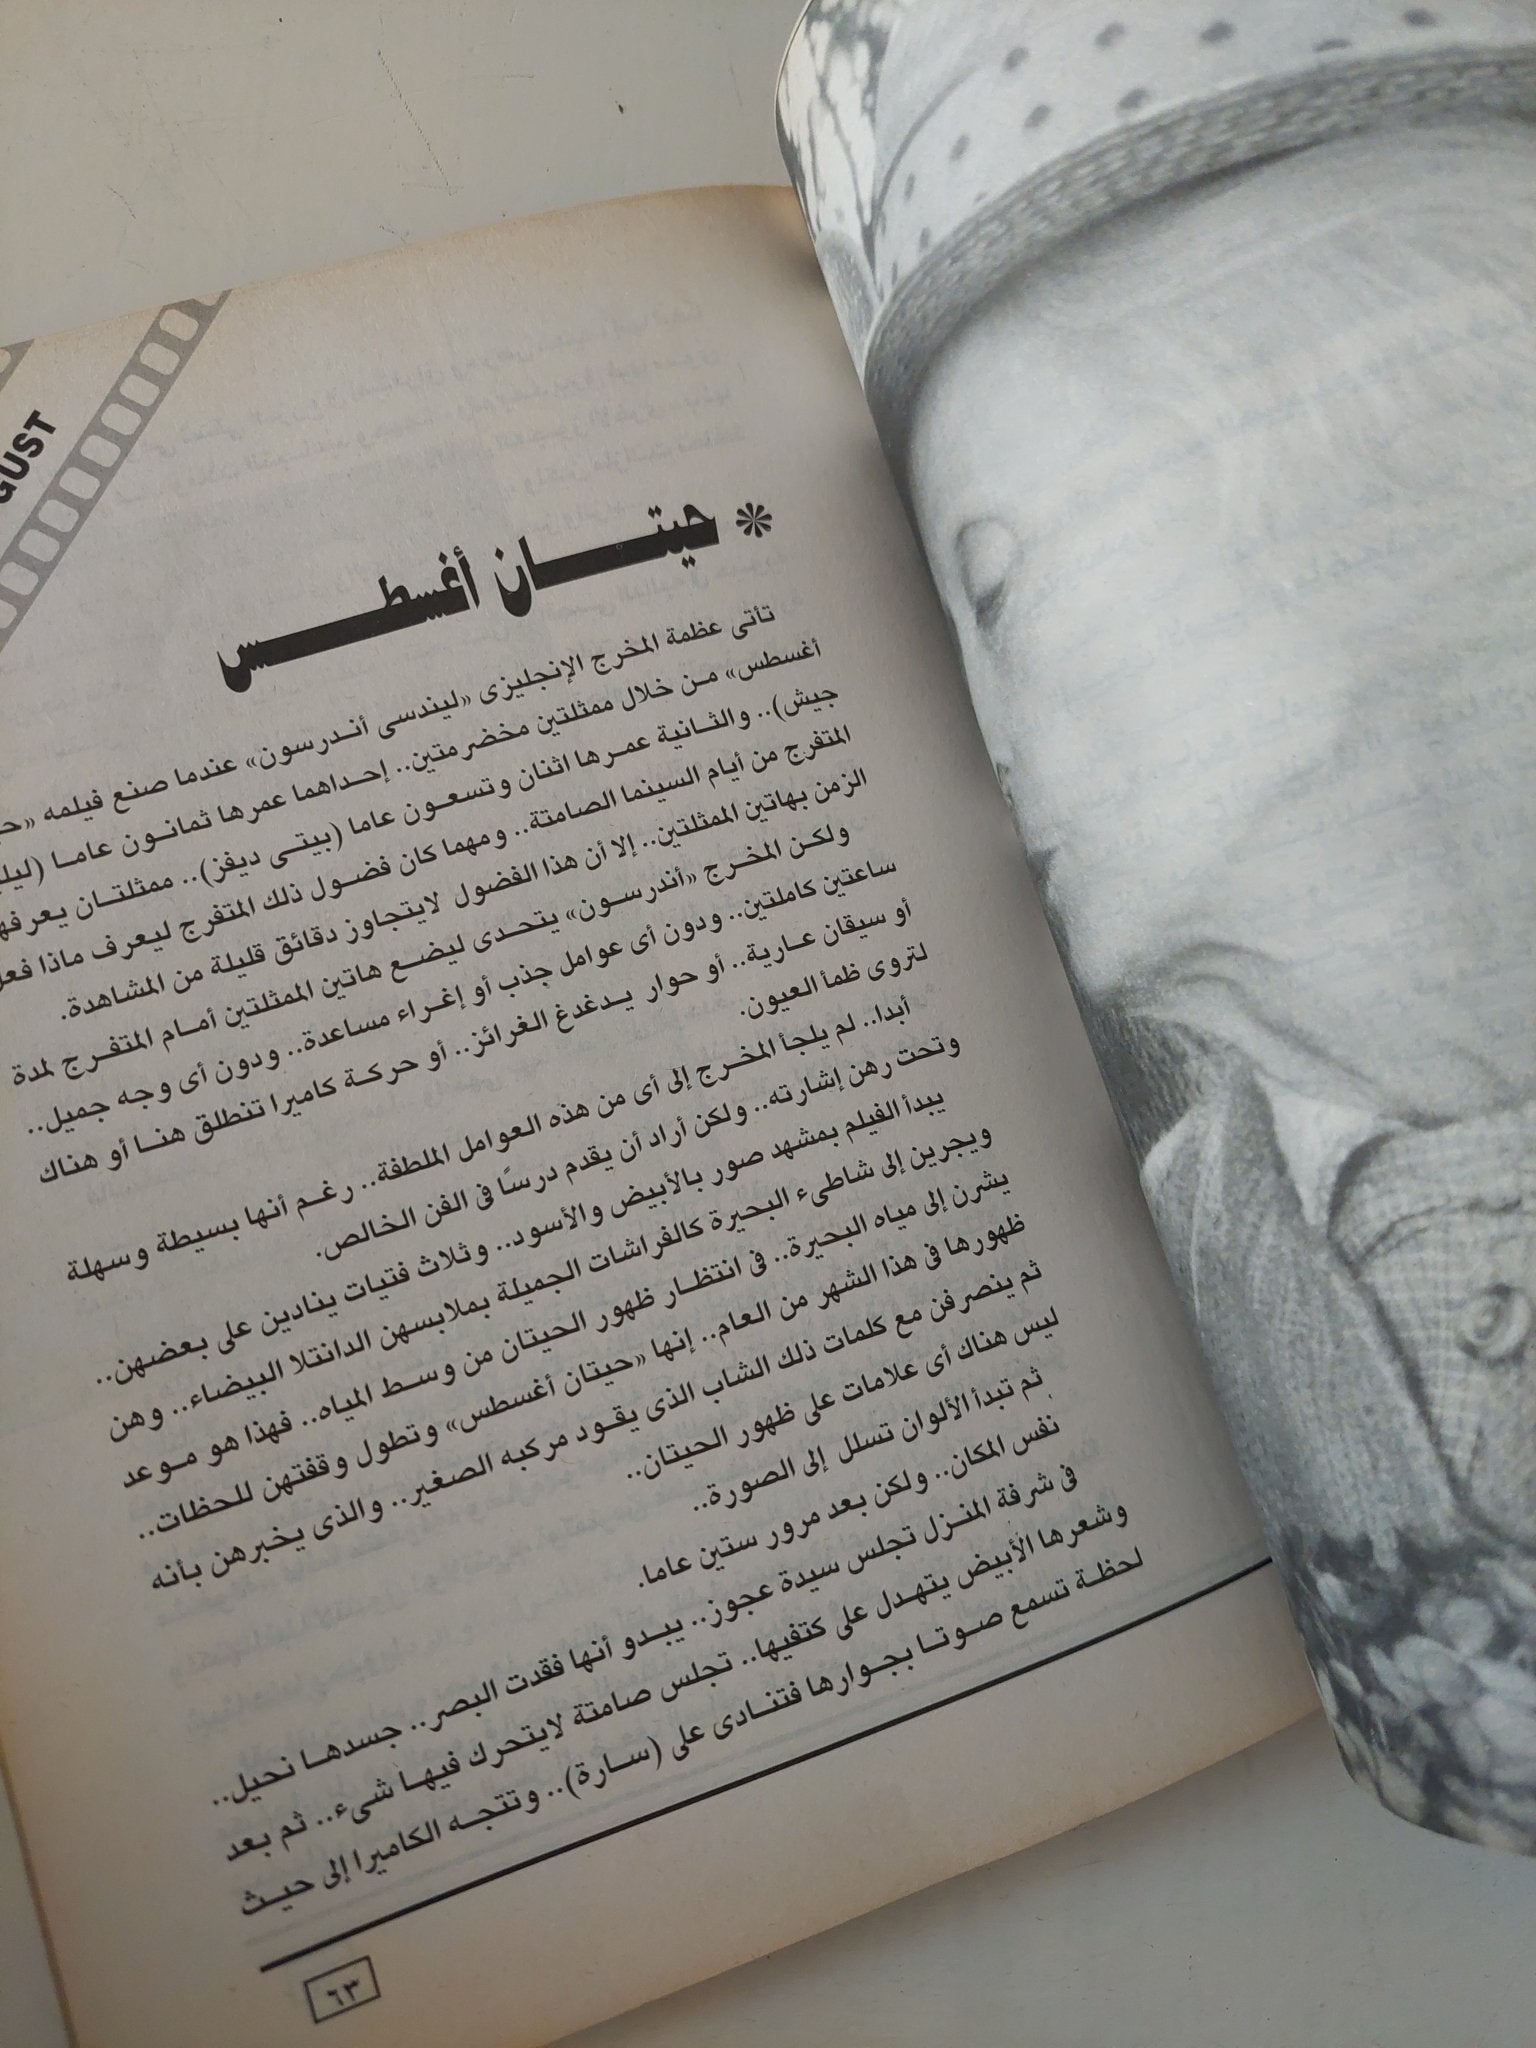 GUST
* حيتــــان أغسطــــس
تأتى عظمة المخرج الإنجليزى «ليندسى أندرسون» عندما صنع فيلمه
أغسطس» من خلال ممثلتين مخضرمتين.. إحداهما عمرها ثمانون عاما
جيش).. والثانية عمرها اثنان وتسعون عاما (بيتى ديفز).. ممثلتان
المتفرج من أيام السينما الصامتة.. ومهما كان فضول ذلك المتفرج ليعرف ماذا
الزمن بهاتين الممثلتين.. إلا أن هذا الفضول لايتجاوز دقائق قليلة من المشاهدة.
ولكن المخرج «أندرسون» يتحدى ليضع هاتين الممثلتين أمام المتفرج لمدة
ساعتين كاملتين.. ودون أى عوامل جذب أو إغراء مساعدة.. ودون أى وجه جميل..
أو سيقان عارية.. أو حوار يدغدغ الغرائز.. أو حركة كاميرا تنطلق هنا أو هناك
لتروى ظمأ العيون.
أبدا.. لم يلجأ المخرج إلى أى من هذه العوامل الملطفة.. رغم أنها بسيطة وسهلة
وتحت رهن إشارته.. ولكن أراد أن يقدم درسًا فى الفن الخالص.
يبدأ الفيلم بمشهد صور بالأبيض والأسود.. وثلاث فتيات ينادين على بعضهن..
ويجرين إلى شاطىء البحيرة كالفراشات الجميلة بملابسهن الدانتلا البيضاء.. وهن
يشرن إلى مياه البحيرة.. فى انتظار ظهور الحيتان من وسط المياه.. فهذا هو موعد
ظهورها فى هذا الشهر من العام.. إنها «حيتان أغسطس» وتطول وقفتهن للحظات..
ثم ينصرفن مع كلمات ذلك الشاب الذى يقود مركبه الصغير.. والذى يخبرهن بأنه
ليس هناك أى علامات على ظهور الحيتان..
ثم تبدأ الألوان تسلل إلى الصورة..
نفس المكان.. ولكن بعد مرور ستين عاما.
فى شرفة المنزل تجلس سيدة عجوز.. يبدو أنها فقدت البصر.. جسدها نحيل..
وشعرها الأبيض يتهدل على كتفيها.. تجلس صامتة لايتحرك فيها شىء.. ثم بعد
لحظة تسمع صوتا بجوارها فتنادى على (سارة).. وتتجه الكاميرا إلى حيث
٦٣